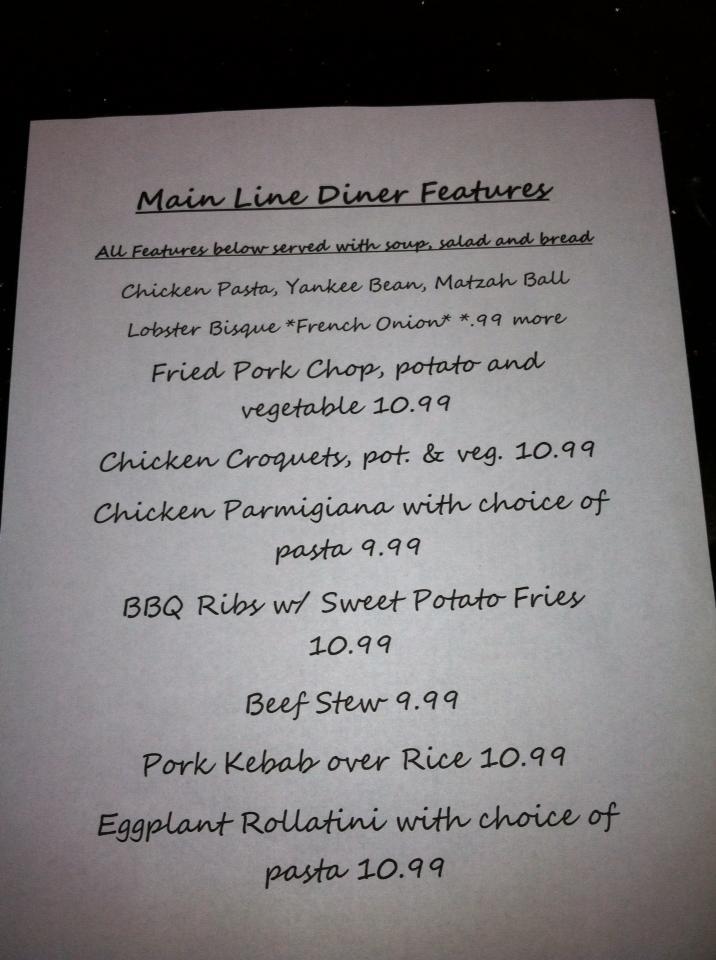 Main Line Diner Features
All Features below served with soup, salad and bread
Chicken Pasta, Yankee Bean, Matzah Ball
Lobster Bisque *French Onion* *.99 more
Fried Pork Chop, potato and
vegetable 10.99
Chicken Croquets, pot. & veg. 10.99
Chicken Parmigiana with choice of
pasta 9.99
BBQ Ribs w/ Sweet Potato Fries
10.99
Beef Stew 9.99
Pork Kebab over Rice 10.99
Eggplant Rollatini with choice of
pasta 10.99